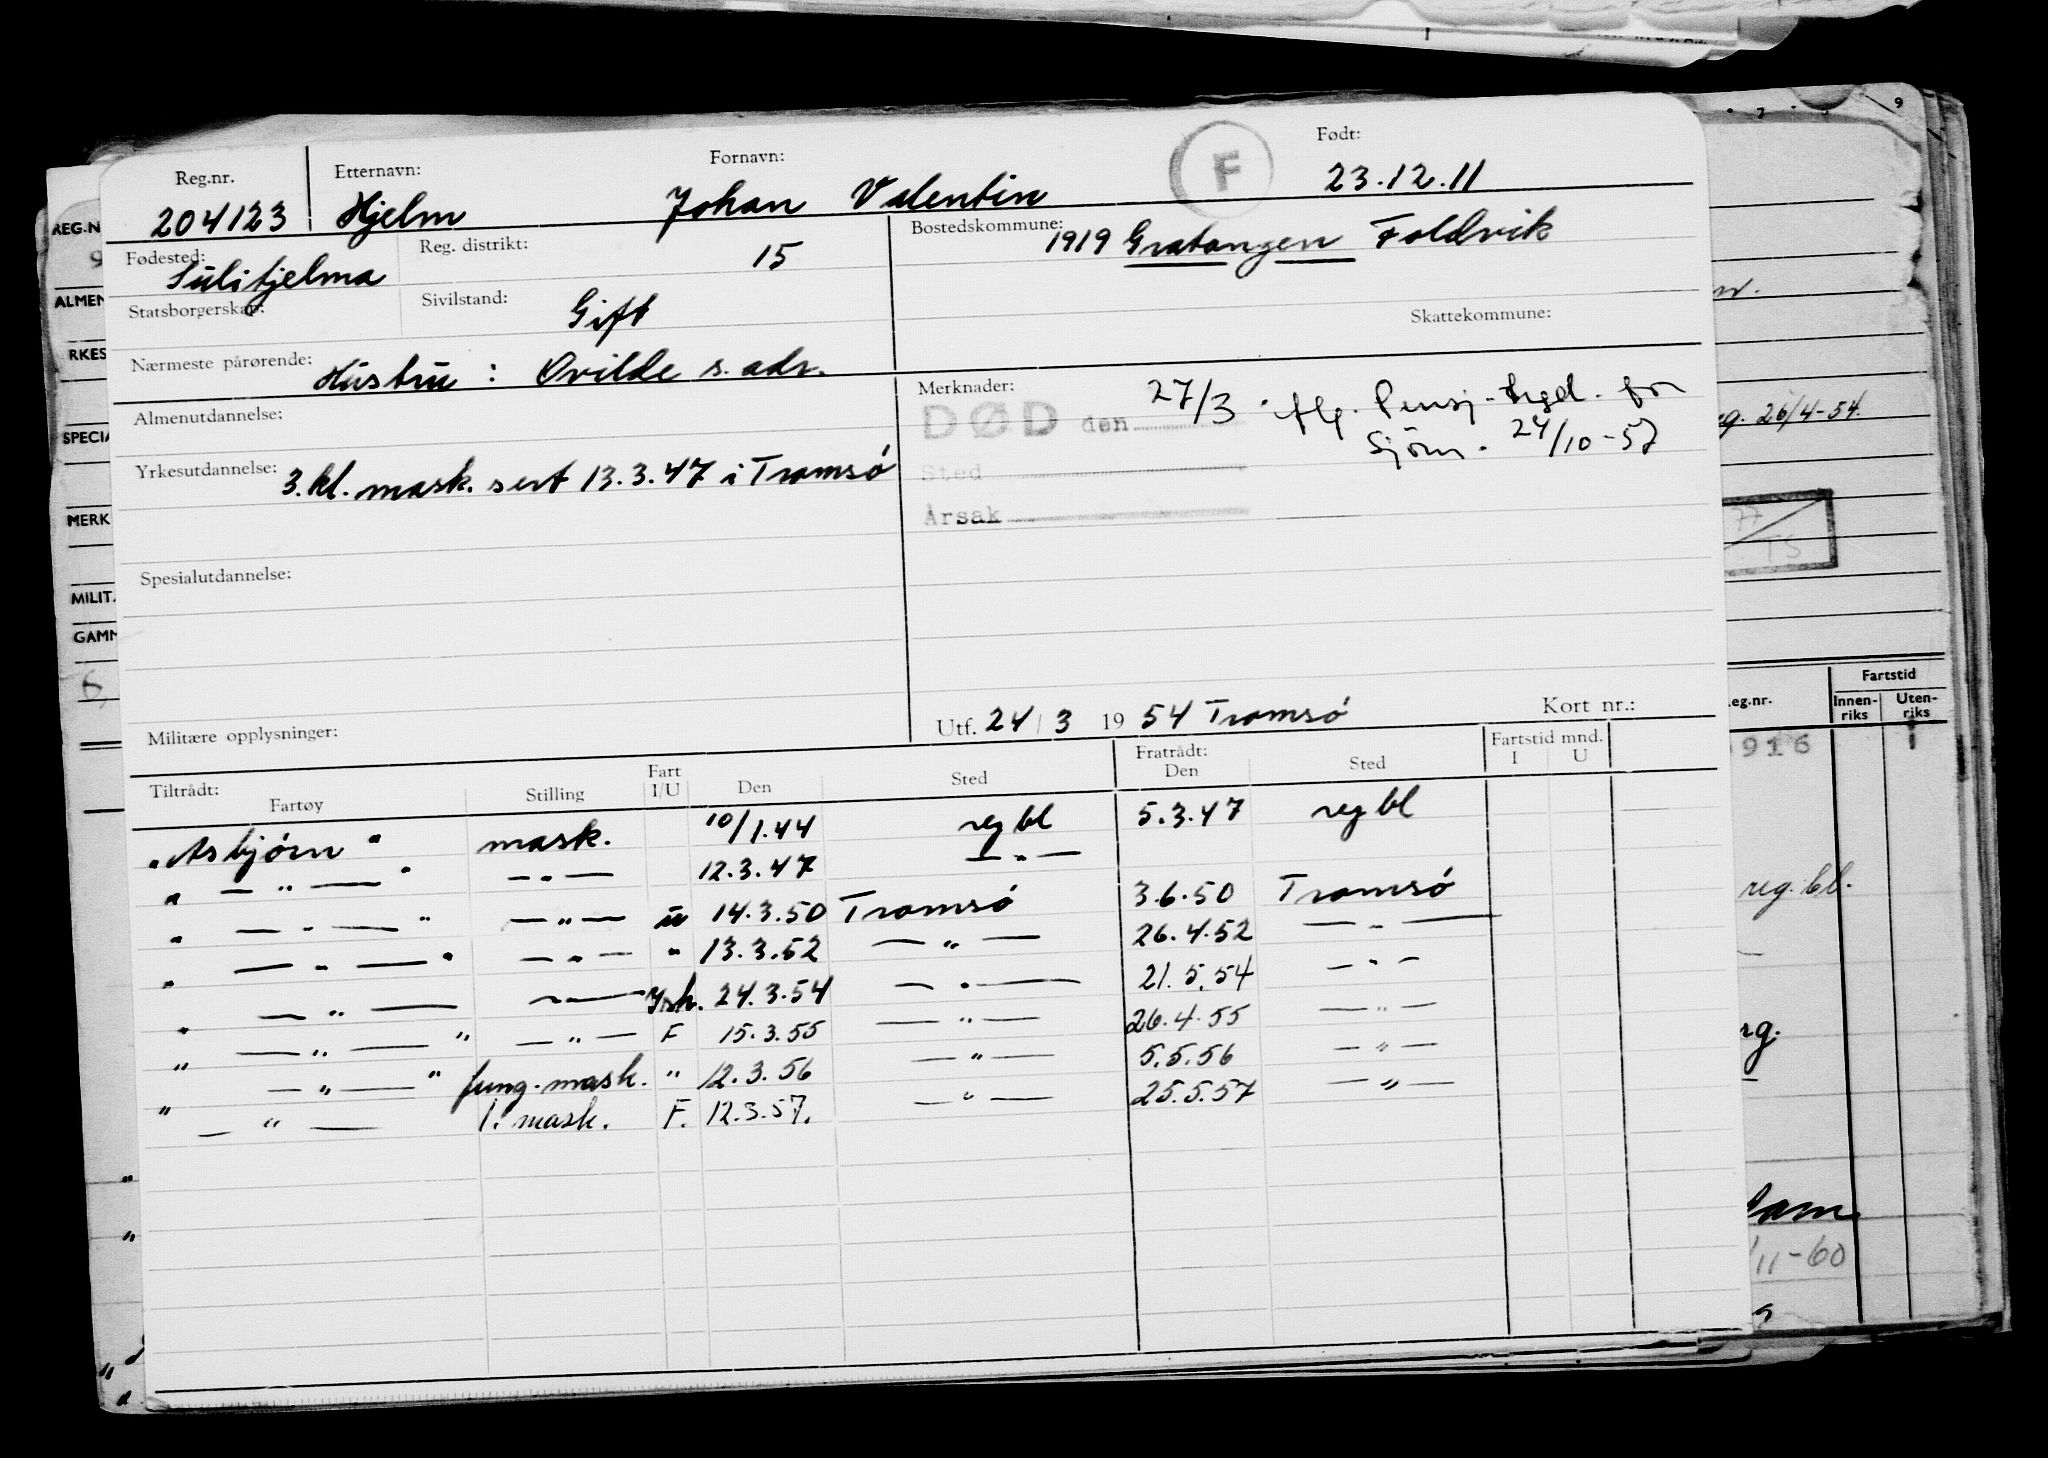 Reg.nr. Etternavn: Fornavn: F Født:
204123 Hjelm Johan Valentin 23.12.11
Fødested: Sulitjelma Reg. distrikt: 15 Bostedskommune: 1919 Gratangen Foldvik
Statsborgerskap: Sivilstand: Gift Skattekommune:
Nærmeste pårørende: Hustru : Ovilde s. adr.
Almenutdannelse:
Merknader: 27/3 iflg. Pensj.-trgd. for
DØD den Sjöm. 24/10-57
Yrkesutdannelse: 3. kl. mask. sert 13.3.47 i Tromsø
Sted
Årsak
Spesialutdannelse:
Militære opplysninger:
Utf. 24 / 3 19 54 Tromsø Kort nr.:
Tiltrådt: Fratrådt: Fartstid mnd.
Fartøy Stilling Fart I/U Den Sted Den Sted I U
"Asbjørn" mask. 10/1.44 reg bl 5.3.47 reg bl
" — " — " — " — 12.3.47 — " —
" — " — " — " — u 14.3.50 Tromsø 3.6.50 Tromsø
" — " — " — " — " 13.3.52 — " — 26.4.52 — " —
" — " — — " — Ish. 24.3.54 — " — 21.5.54 — " —
" — " — " — " — F 15.3.55 — " — 26.4.55 — " —
" — " — " fung. mask. " 12.3.56 — " — 5.5.56 — " —
" — " — 1. mask. F. 12.3.57. — " — 25.5.57 — " —
REG.N
ALMEN
RKES
SPECIA
MERK
MILIT.
GAMM
7
9
26/4-54.
77
TS
eg.nr. Fartstid
Innenriks Utenriks
916
reg. bl.
rg.
/11-60